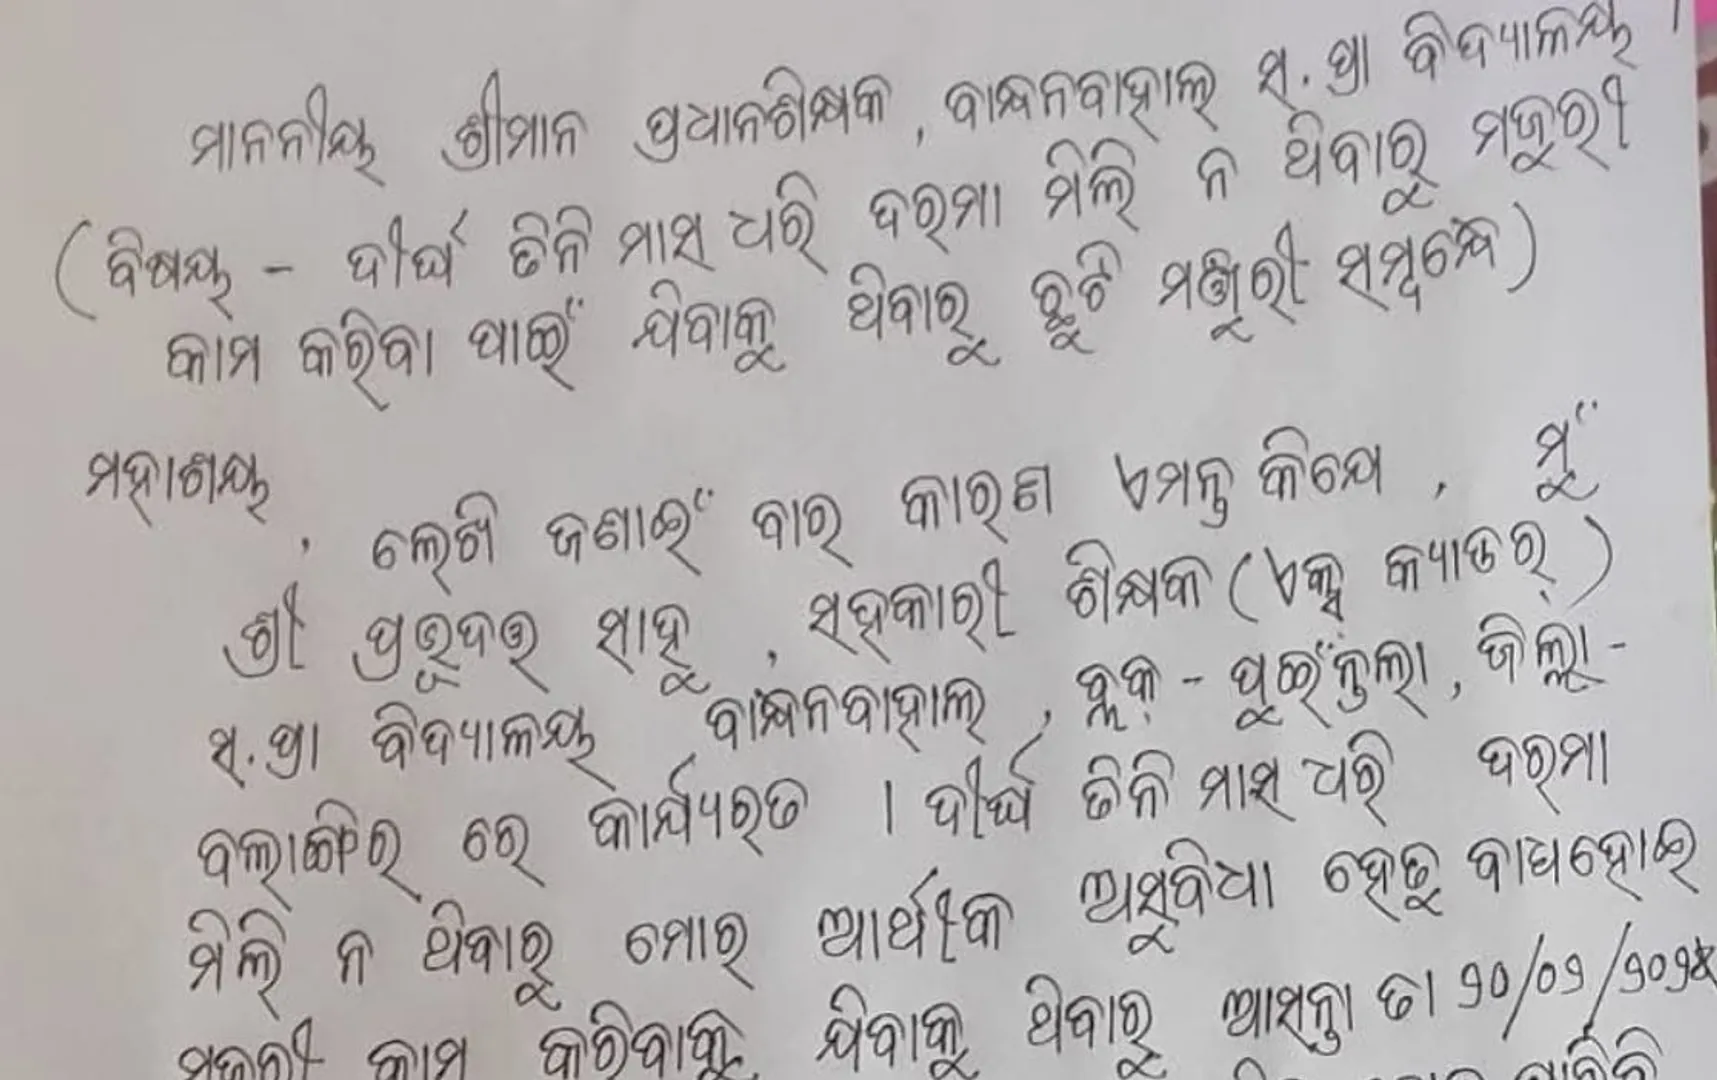 ମାନନୀୟ ଶ୍ରୀମାନ ପ୍ରଧାନଶିକ୍ଷକ, ବାନ୍ଧନବାହାଲ ସ.ପ୍ରା ବିଦ୍ୟାଳୟ ।
(ବିଷୟ - ଦୀର୍ଘ ତିନି ମାସ ଧରି ଦରମା ମିଲି ନ ଥିବାରୁ ମଜୁରୀ
କାମ କରିବା ପାଇଁ ଯିବାକୁ ଥିବାରୁ ଛୁଟି ମଞ୍ଜୁରୀ ସମ୍ବନ୍ଧେ)
ମହାଶୟ,
ଲେଖି ଜଣାଇଁ ବାର କାରଣ ଏମନ୍ତ କିଯେ, ମୁଁ
ଶ୍ରୀ ପ୍ରଭୁଦତ୍ତ ସାହୁ, ସହକାରୀ ଶିକ୍ଷକ (ଏକ୍ସ କ୍ୟାଡର୍)
ସ.ପ୍ରା ବିଦ୍ୟାଳୟ ବାନ୍ଧନବାହାଲ, ବ୍ଲକ୍ - ପୁଇଁନ୍ତଲା, ଜିଲ୍ଲା -
ବଲାଙ୍ଗିର ରେ କାର୍ଯ୍ୟରତ । ଦୀର୍ଘ ତିନି ମାସ ଧରି ଦରମା
ମିଲି ନ ଥିବାରୁ ମୋର ଆର୍ଥୀକ ଅସୁବିଧା ହେତୁ ବାଧହୋଇ
ମଜୁରୀ କାମ କରିବାକୁ ଯିବାକୁ ଥିବାରୁ ଆସନ୍ତା ତା ୨୦/୦୨/୨୦୨୫